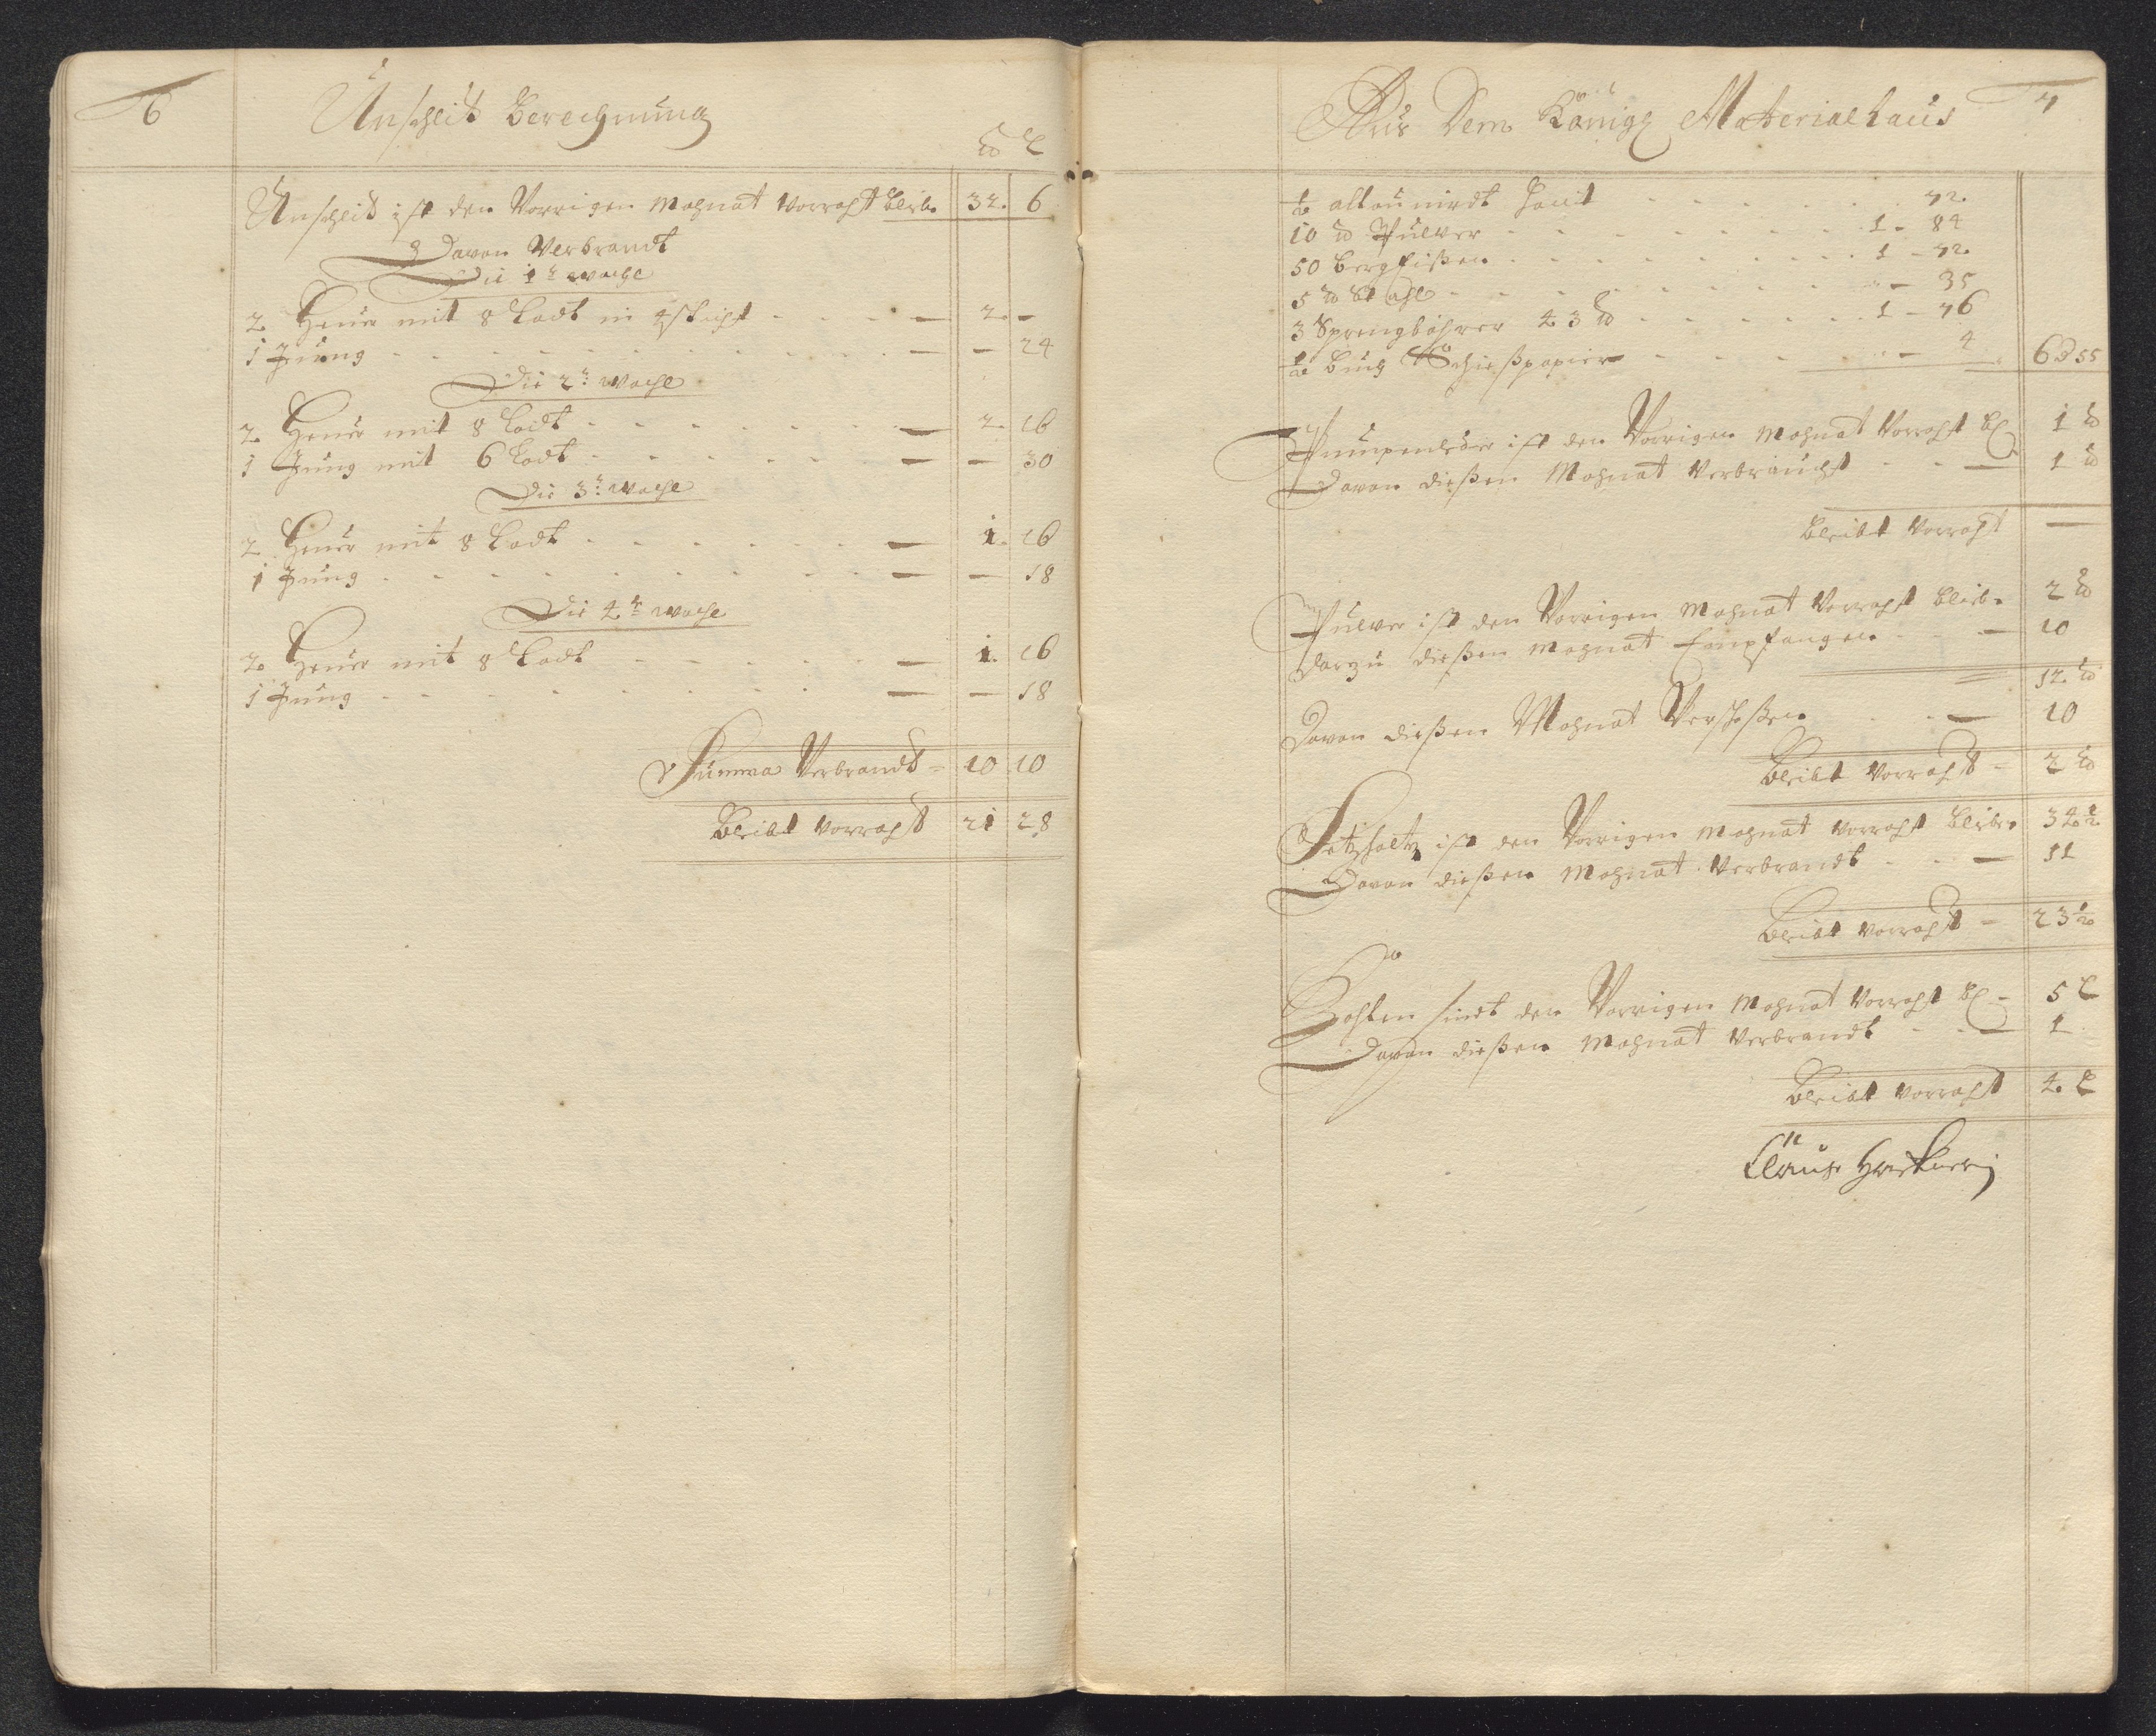 6
Unschlit Berechnung
℔ L
Unschlit ist den Vorrigen Mohnat Vorraht blieb. 32. 6
Davon Verbrandt
Die 1te woche
2 Heuer mit 8 Lodt in 4 schicht - - - 2. -
1 Jung - - - - 24
Die 2te woche
2 Heuer mit 8 Lodt - - - 2. 16
1 Jung mit 6 Lodt - - - - 30
Die 3te woche
2 Heuer mit 8 Lodt - - - 1. 16
1 Jung - - - - 18
Die 4te woche
2 Heuer mit 8 Lodt - - - 1. 16
1 Jung - - - - 18
Summa Verbrandt - 10 10
Bleibt Vorraht 21 28
7
Aus Dem Königl Materialhaus
½ allaunirdt Haut - - - 72
10 ℔ Pulver - - - 1 - 84
50 bergeißen - - - 1 - 72
5 ℔ Stahl - - - 35
3 Sprengbohrer 43 ℔ - - - 1 - 76
½ buch Schießpapier - - - 4 6 55
Pumpenleder ist den Vorrigen Mohnat Vorraht bl 1 ℔
Davon dießen Mohnat Verbraucht - - - 1 ℔
Bleibt Vorraht -
Pulver ist den Vorrigen Mohnat Vorraht blieb. 2 ℔
darzu dießen Mohnat Empfangen - - - 10
12 ℔
Davon dießen Mohnat Verschoßen - - - 10
Bleibt Vorraht - 2 ℔
Setzholtz ist den Vorrigen Mohnat Vorraht blieb. 34½
Davon dießen Mohnat Verbrandt - - - 11
Bleibt Vorraht - 23½
Kohlen sindt den Vorrigen Mohnat Vorraht bl - 5 L
Davon dießen Mohnat Verbrandt - - - 1
Bleibt Vorraht 4. L
Claus